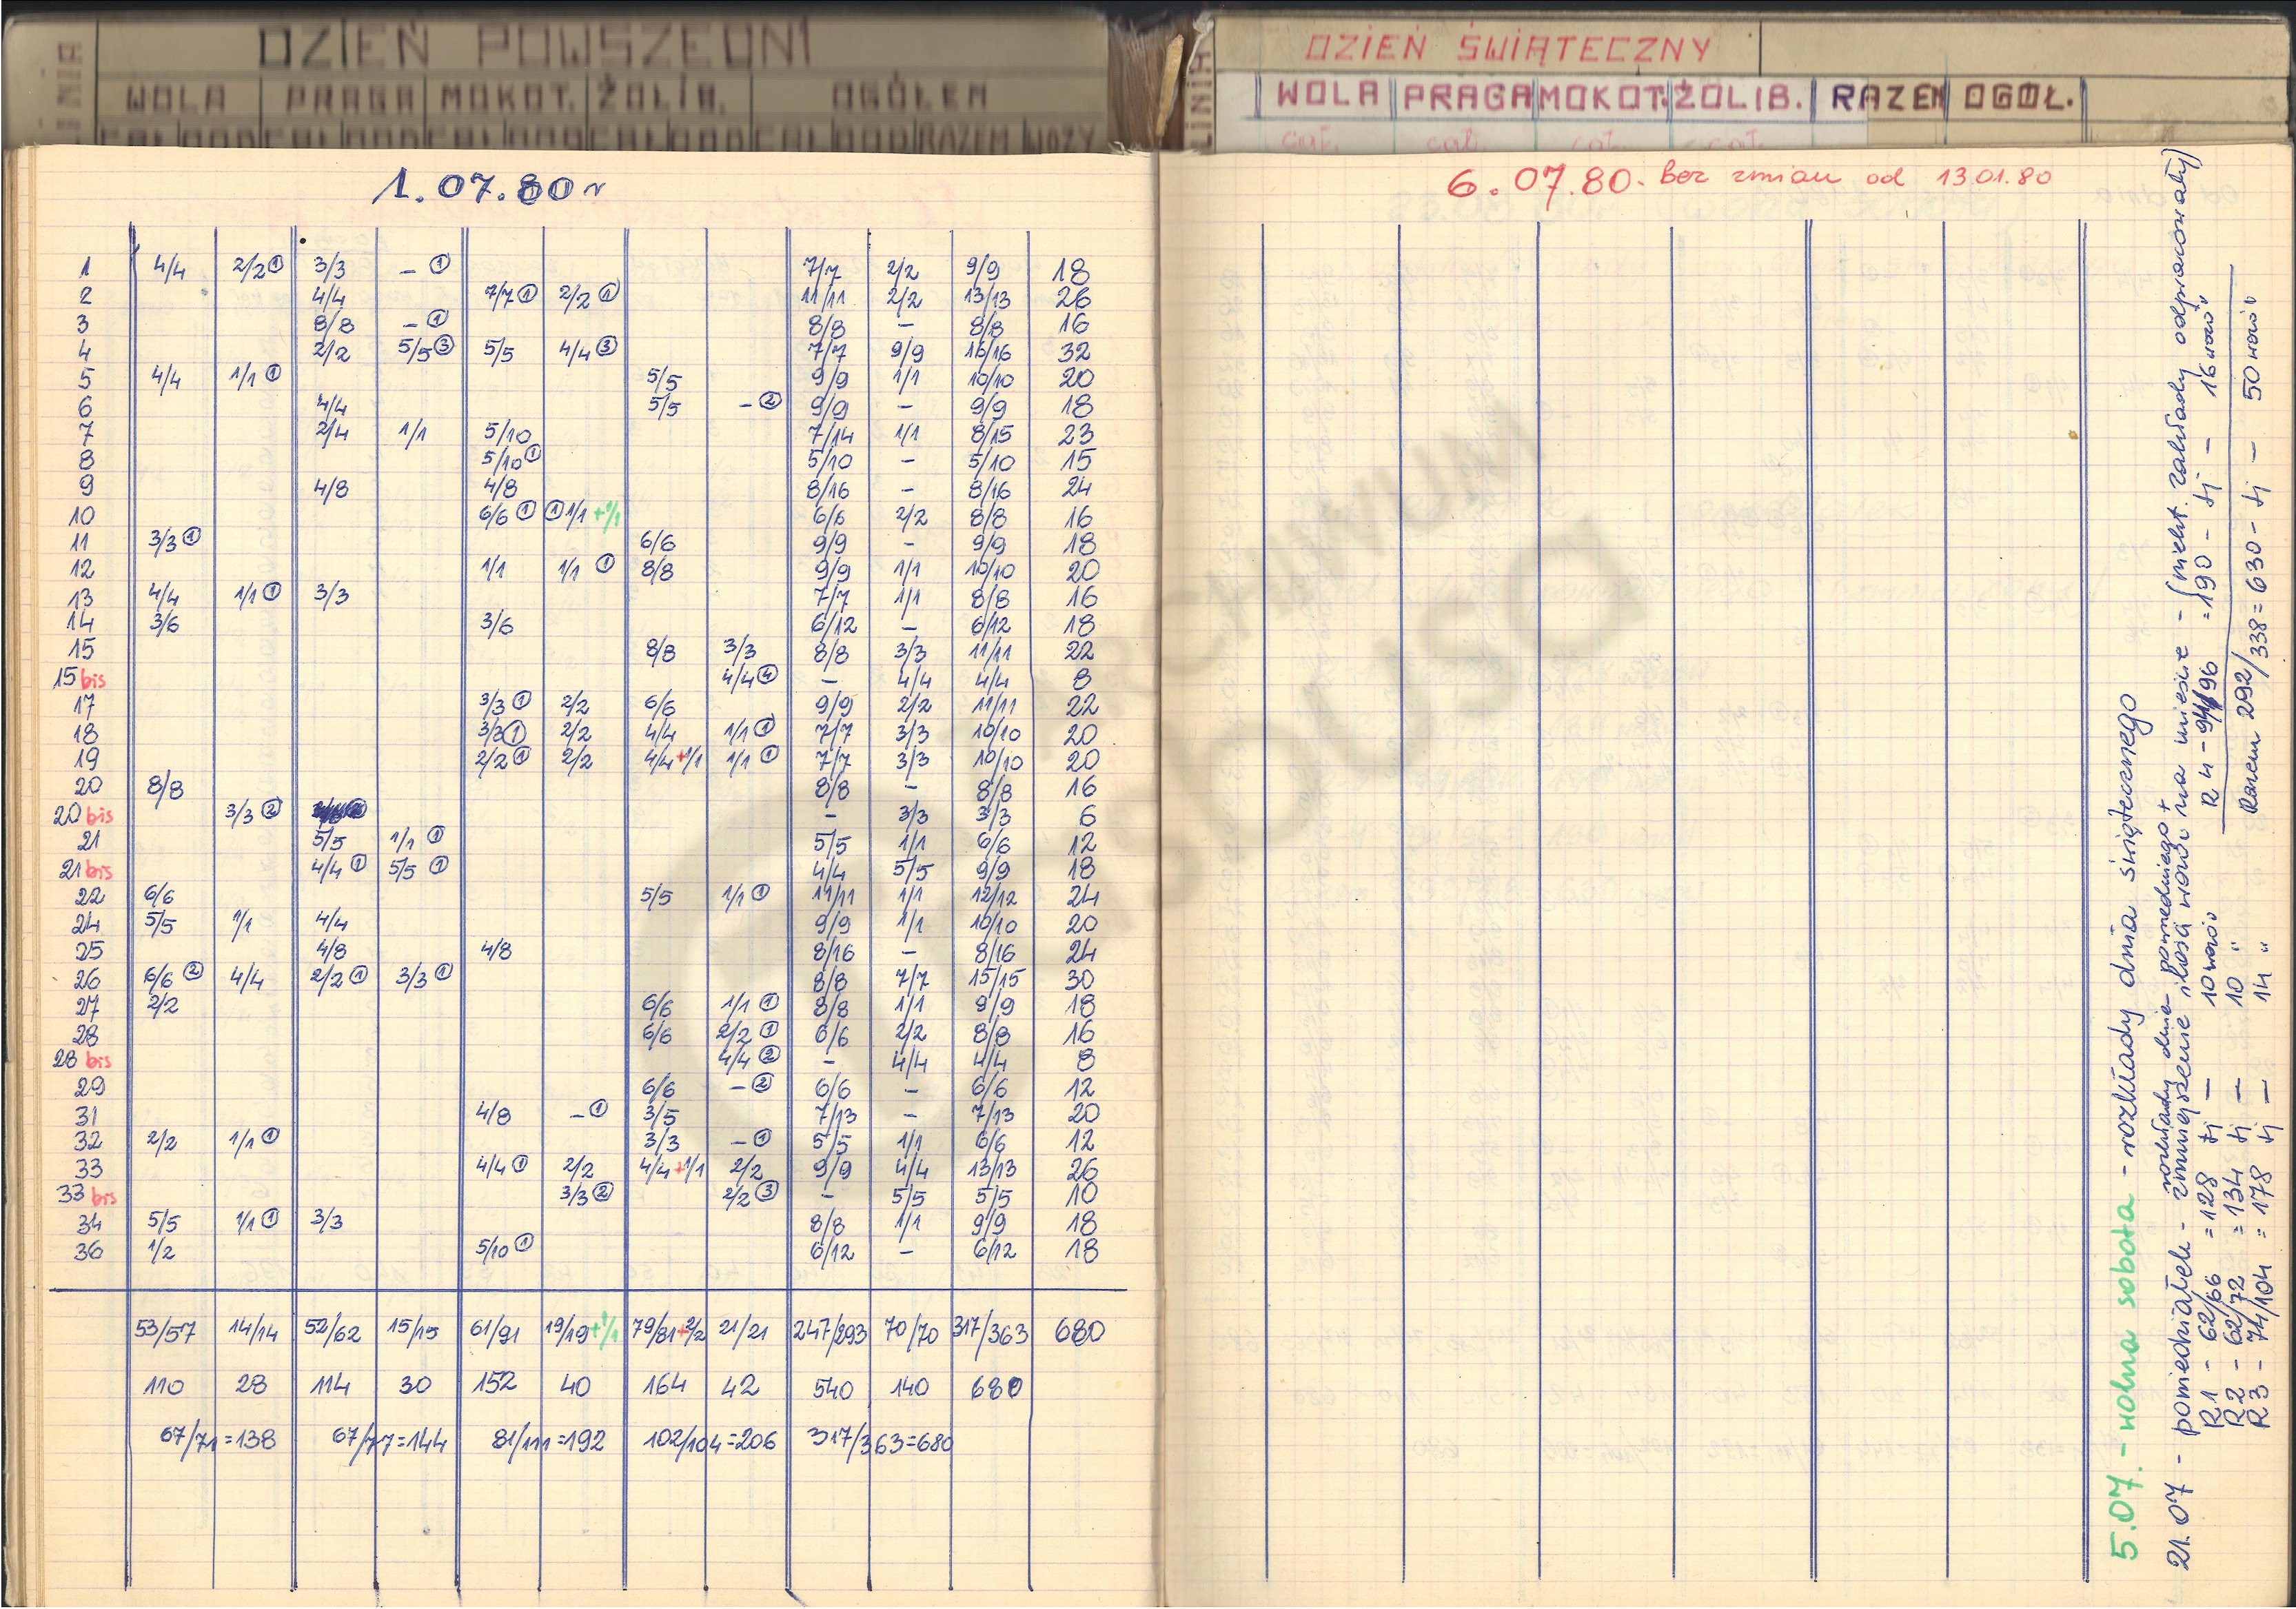 DZIEŃ POWSZEDNI
LINIA WOLA PRAGA MOKOT. ŻOLIB. OGÓŁEM
CAŁ DOD CAŁ DOD CAŁ DOD CAŁ DOD CAŁ DOD RAZEM WOZY
1.07.80 r
1 4/4 2/2 ① 3/3 – ① 7/7 2/2 9/9 18
2 4/4 7/7 ① 2/2 ① 11/11 2/2 13/13 26
3 8/8 – ① 8/8 – 8/8 16
4 2/2 5/5 ③ 5/5 4/4 ③ 7/7 9/9 16/16 32
5 4/4 1/1 ① 5/5 9/9 1/1 10/10 20
6 4/4 5/5 – ② 9/9 – 9/9 18
7 2/4 1/1 5/10 7/14 1/1 8/15 23
8 5/10 ① 5/10 – 5/10 15
9 4/8 4/8 8/16 – 8/16 24
10 6/6 ① ① 1/1 +1/1 6/6 2/2 8/8 16
11 3/3 ① 6/6 9/9 – 9/9 18
12 1/1 1/1 ① 8/8 9/9 1/1 10/10 20
13 4/4 1/1 ① 3/3 7/7 1/1 8/8 16
14 3/6 3/6 6/12 – 6/12 18
15 8/8 3/3 8/8 3/3 11/11 22
15 bis 4/4 ④ – 4/4 4/4 8
17 3/3 ① 2/2 6/6 9/9 2/2 11/11 22
18 3/3 ① 2/2 4/4 1/1 ① 7/7 3/3 10/10 20
19 2/2 ① 2/2 4/4 +1/1 1/1 ① 7/7 3/3 10/10 20
20 8/8 8/8 – 8/8 16
20 bis 3/3 ② – 3/3 3/3 6
21 5/5 1/1 ① 5/5 1/1 6/6 12
21 bis 4/4 ① 5/5 ① 4/4 5/5 9/9 18
22 6/6 5/5 1/1 ① 11/11 1/1 12/12 24
24 5/5 1/1 4/4 9/9 1/1 10/10 20
25 4/8 4/8 8/16 – 8/16 24
26 6/6 ② 4/4 2/2 ① 3/3 ① 8/8 7/7 15/15 30
27 2/2 6/6 1/1 ① 8/8 1/1 9/9 18
28 6/6 2/2 ① 6/6 2/2 8/8 16
28 bis 4/4 ② – 4/4 4/4 8
29 6/6 – ② 6/6 – 6/6 12
31 4/8 – ① 3/5 7/13 – 7/13 20
32 2/2 1/1 ① 3/3 – ① 5/5 1/1 6/6 12
33 4/4 ① 2/2 4/4 +1/1 2/2 9/9 4/4 13/13 26
33 bis 3/3 ② 2/2 ③ – 5/5 5/5 10
34 5/5 1/1 ① 3/3 8/8 1/1 9/9 18
36 1/2 5/10 ① 6/12 – 6/12 18
53/57 14/14 52/62 15/15 61/91 19/19 +1/1 79/81 +2/2 21/21 247/293 70/70 317/363 680
110 28 114 30 152 40 164 42 540 140 680
67/71=138 67/77=144 81/111=192 102/104=206 317/363=680
DZIEŃ ŚWIĄTECZNY
LINIA WOLA PRAGA MOKOT. ŻOLIB. RAZEM OGÓŁ.
cał. cał. cał. cał.
6.07.80. bez zmian od 13.01.80
5.07. - wolna sobota - rozkłady dnia świątecznego
21.07 - poniedziałek - rozkłady dnia powszedniego +
zmniejszenie ilości wozów na mieście - (niekt. zakłady odpracowały)
R1 - 62/66 = 128 tj — 10 wozów
R2 - 62/72 = 134 tj — 10 "
R3 - 74/104 = 178 tj — 14 "
R4 - 94/96 = 190 - tj — 16 wozów
Razem 292/338 = 630 - tj — 50 wozów